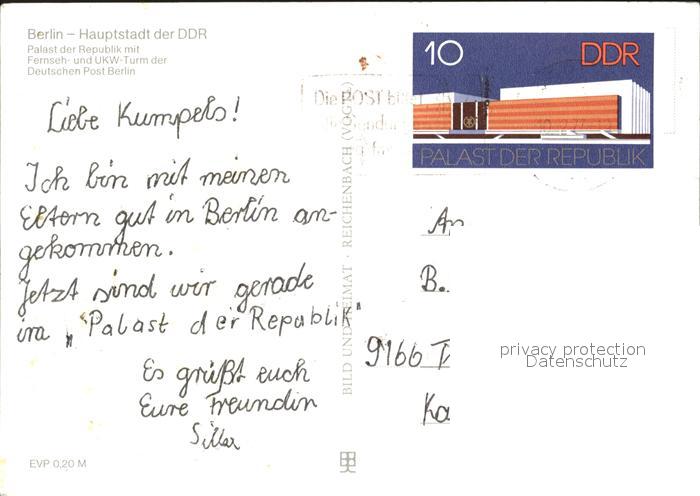 Berlin – Hauptstadt der DDR
Palast der Republik mit
Fernseh- und UKW-Turm der
Deutschen Post Berlin
Liebe Kumpels!
Ich bin mit meinen
Eltern gut in Berlin an-
gekommen.
Jetzt sind wir gerade
im „Palast der Republik"
Es grüßt euch
Eure Freundin
EVP 0,20 M
BILD UND HEIMAT · REICHENBACH (VOGTL)
Die POST
10 DDR
PALAST DER REPUBLIK
An
B.
9166 T
Ka
privacy protection
Datenschutz